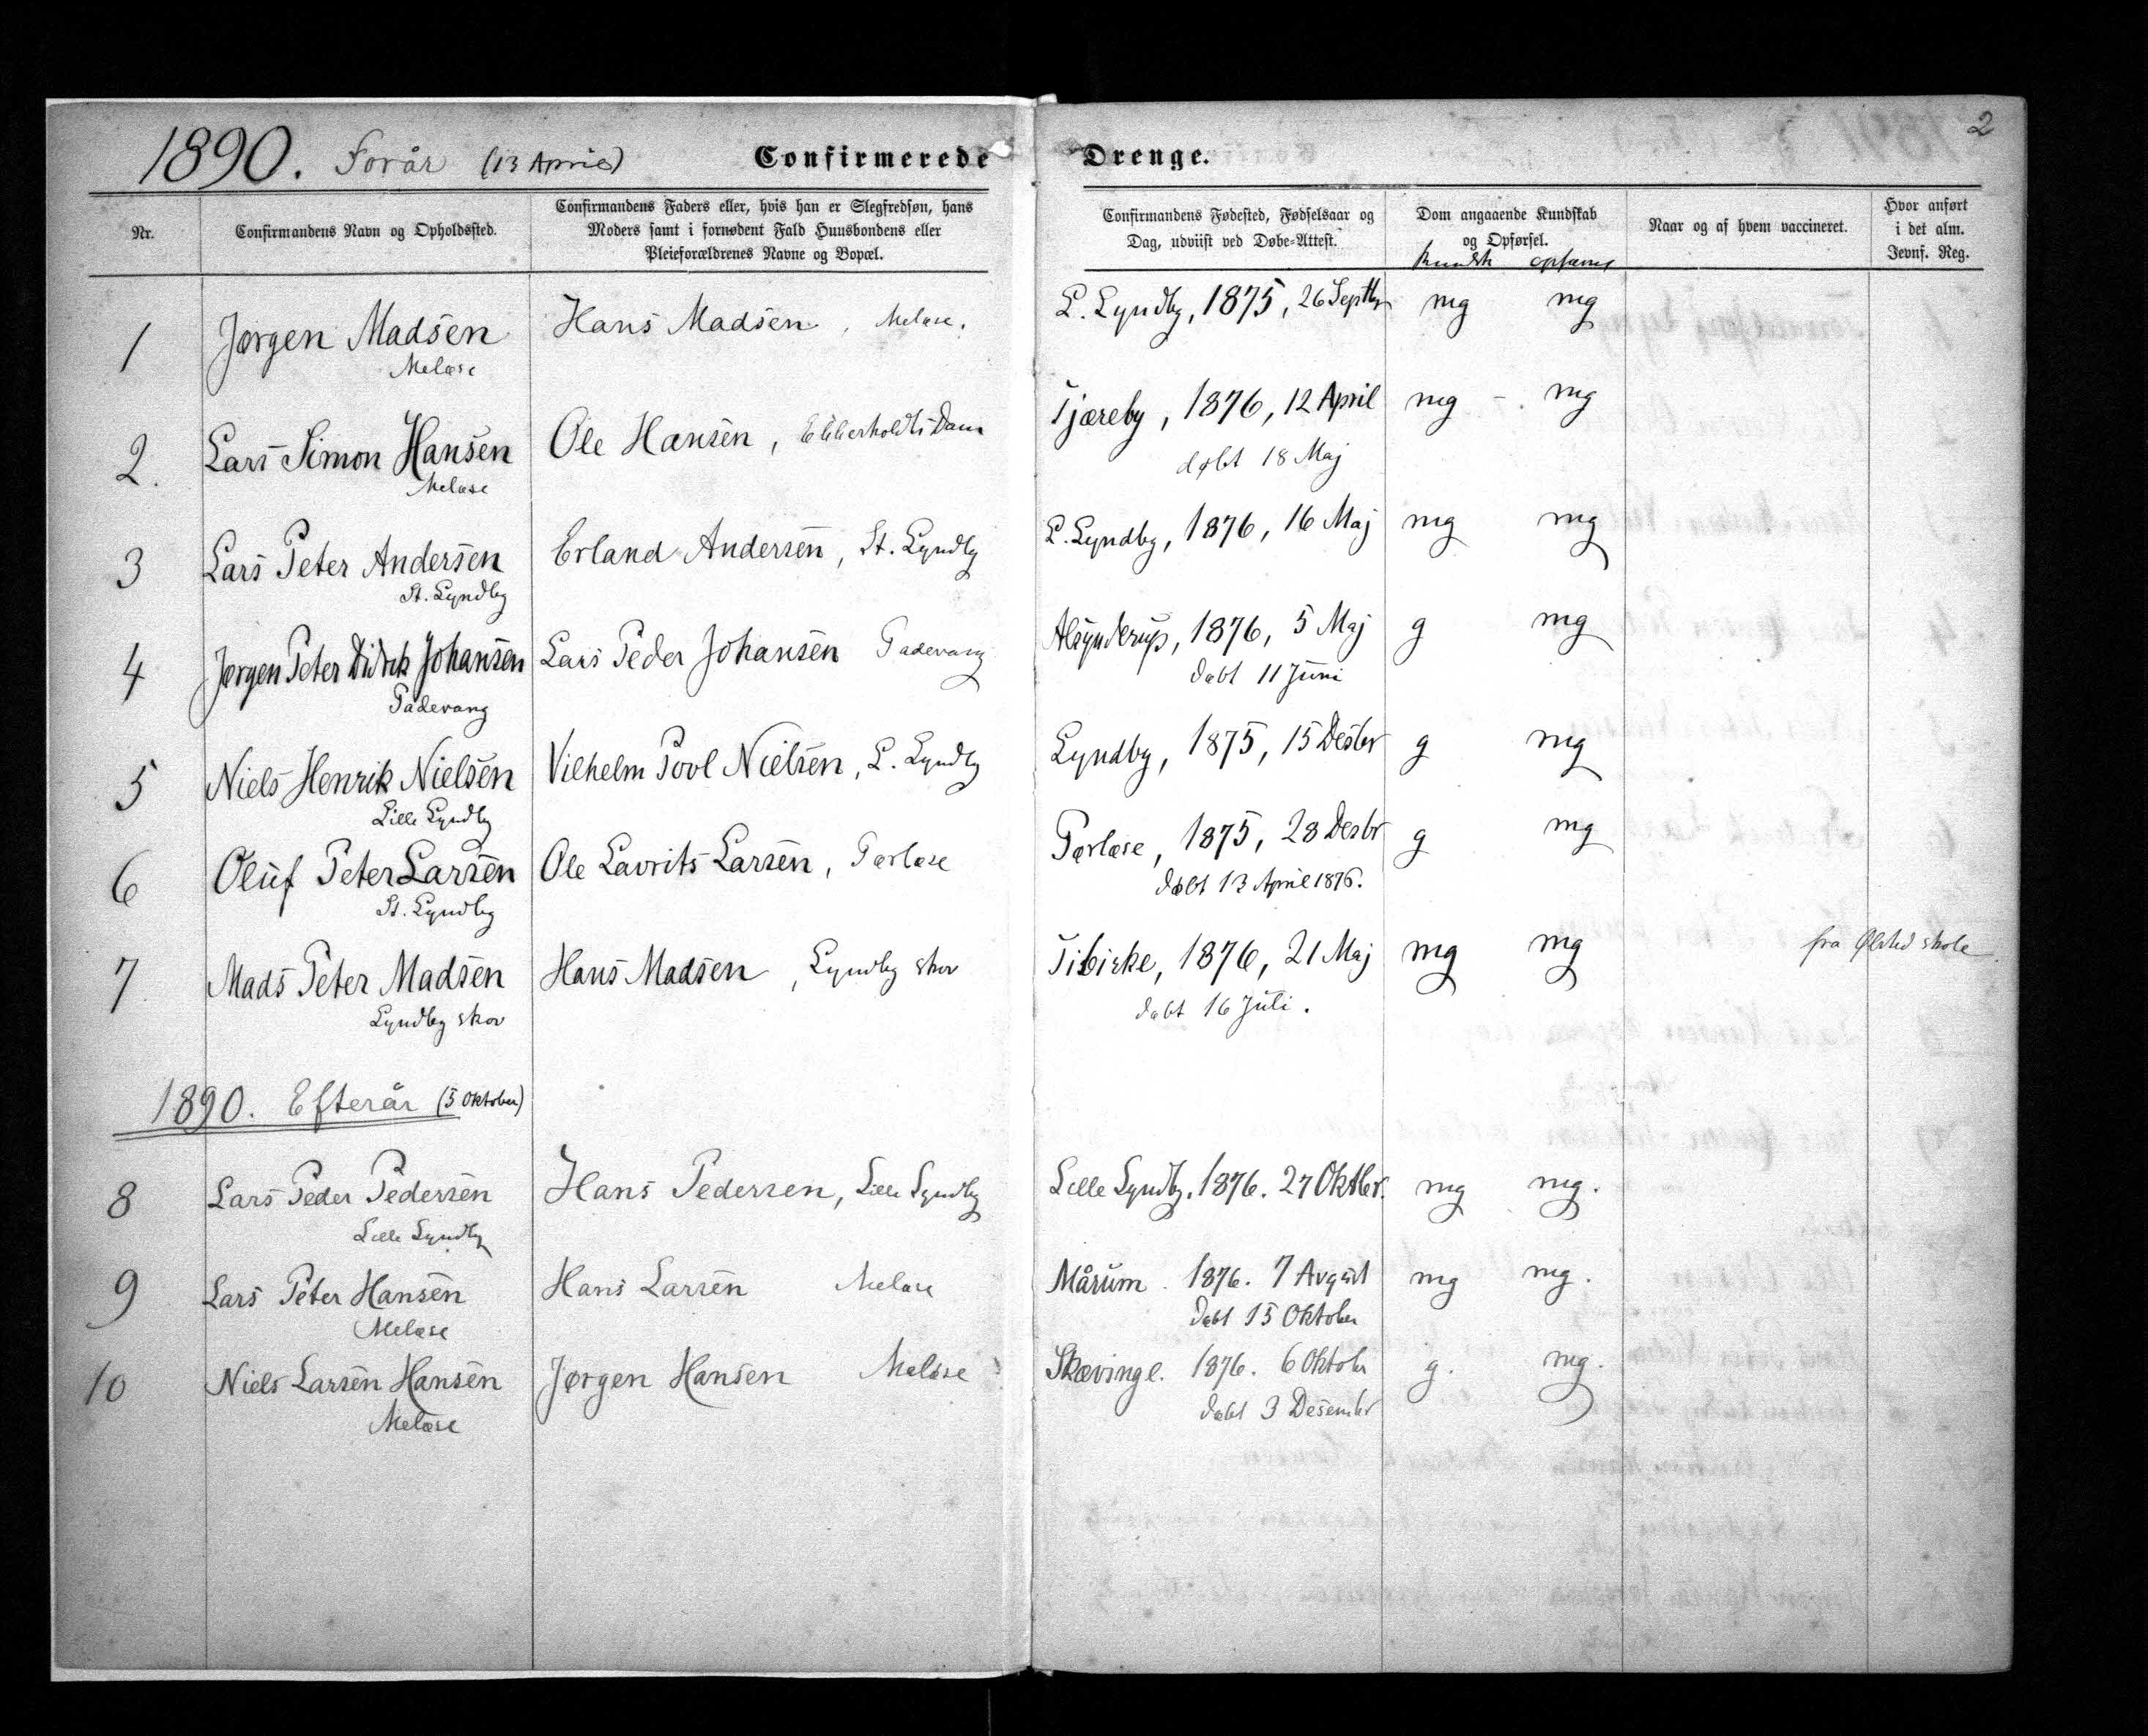 2
1890. Forår (13 April) Confirmerede Drenge.
Nr.
Confirmandens Navn og Opholdssted.
Confirmandens Faders eller, hvis han er Slegfredsøn, hans
Moders samt i fornødent Fald Huusbondens eller
Pleieforældrenes Navne og Bopæl.
Confirmandens Fødested, Fødselsaar og
Dag, udviist ved Døbe-Attest.
Dom angaaende Kundskab
og Opførsel.
Kundsk opførsel
Naar og af hvem vaccineret.
Hvor anført
i det alm.
Jevnf. Reg.
1 Jørgen Madsen Hans Madsen, Meløse. L. Lyndby, 1875, 26 Septbr mg mg
Meløse
2. Lars Simon Hansen Ole Hansen, Tjæreby, 1876, 12 April mg - mg
Meløse døbt 18 Maj
3 Lars Peter Andersen Erland Andersen, St. Lyndby L. Lyndby, 1876, 16 Maj mg mg
St. Lyndby
4 Jørgen Peter Didrik Johansen Lars Peder Johansen Gadevang Alsynderup, 1876, 5 Maj g mg
Gadevang døbt 11 Juni
5 Niels Henrik Nielsen Vilhelm Povl Nielsen, L. Lyndby Lyndby, 1875, 15 Desbr g mg
Lille Lyndby
6 Oluf Peter Larsen Ole Lavrits Larsen, Gørløse Gørløse, 1875, 28 Desbr g mg
St. Lyndby døbt 13 April 1876.
7 Mads Peter Madsen Hans Madsen, Lyndby skov Tibirke, 1876, 21 Maj mg mg fra Ølsted skole
Lyndby skov døbt 16 Juli.
1890. Efterår (5 Oktober)
8 Lars Peder Pedersen Hans Pedersen, Lille Lyndby Lille Lyndby. 1876. 27 Oktbr. mg mg.
Lille Lyndby
9 Lars Peter Hansen Hans Larsen Meløse Mårum. 1876. 7 Avgust mg mg.
Meløse døbt 15 Oktober
10 Niels Larsen Hansen Jørgen Hansen Meløse Skævinge. 1876. 6 Oktobr g. mg.
Meløse døbt 3 Desembr